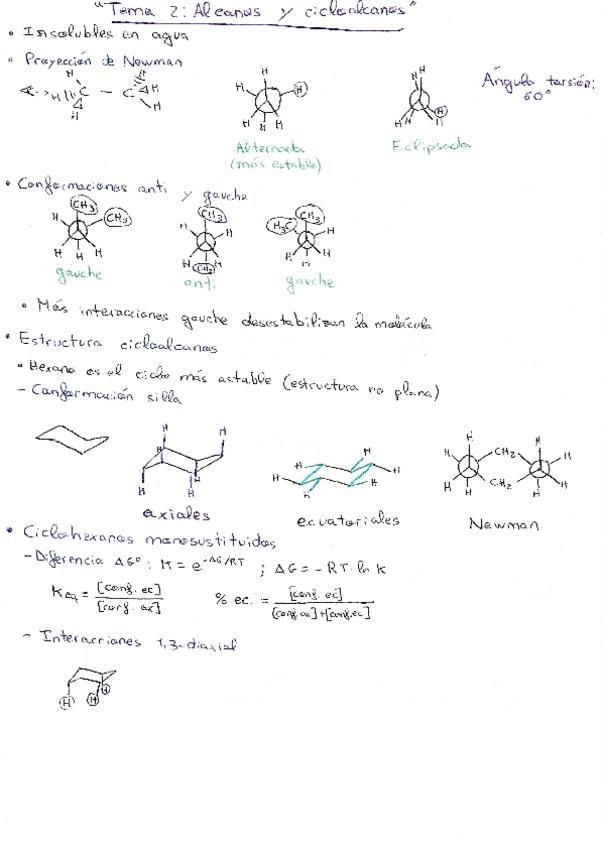 "Tema 2: Alcanos y cicloalcanos"
• Insolubles en agua
• Proyección de Newman
H H H C — C H H H
H H H H H H
H H H H
Ángulo torsión: 60°
Alternada (más estable)
Eclipsada
• Conformaciones anti y gauche
CH3 CH3 H H H H
CH3 H H H H CH3
CH3 H3C H H H H
gauche
anti
gauche
• Más interacciones gauche desestabilizan la molécula
• Estructura cicloalcanos
• Hexano es el ciclo más estable (estructura no plana)
- Conformación silla
H H H H H H
H H H H H H
H H CH2 H H
H H CH2 H H
axiales
ecuatoriales
Newman
• Ciclohexanos monosustituidos
- Diferencia ΔG° : K = e^-ΔG/RT ; ΔG = - RT· ln K
Keq = [conf. ec] / [conf. ax]
% ec. = [conf. ec] / [conf. ax]+[conf. ec]
- Interacciones 1,3-diaxial
H H H